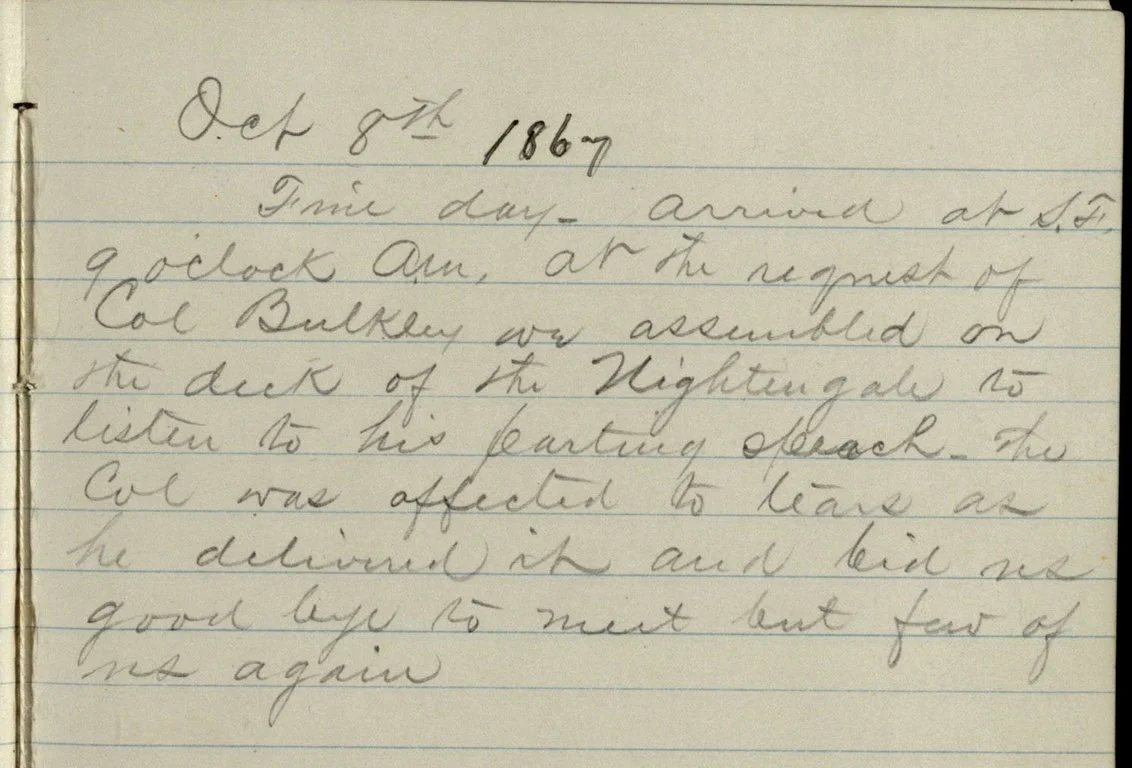 Oct 8th 1867
Fine day - arrived at S.F.
9 o'clock Am, at the request of
Col Bulkley we assembled on
the deck of the Nightengale to
listen to his parting speach - the
Col was affected to tears as
he delivered it and bid us
good bye to meet but few of
us again